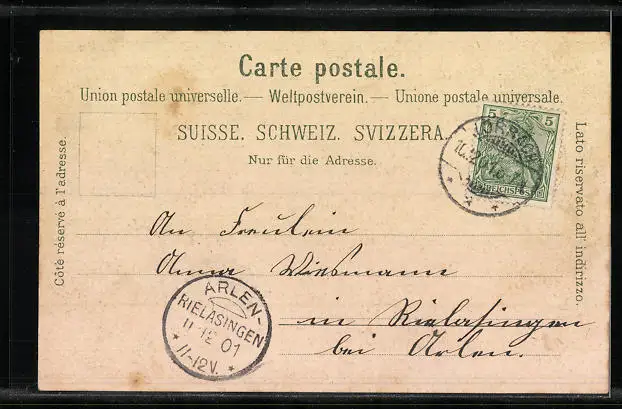 Carte postale.
Union postale universelle. — Weltpostverein. — Unione postale universale.
SUISSE. SCHWEIZ. SVIZZERA.
Nur für die Adresse.
Côté réservé à l'adresse.
Lato riservato all' indirizzo.
5 5
REICHSPOST
An Freulein
Anna Wiesmann
in Rielasingen
bei Arlen.
ARLEN-
RIELASINGEN
11 12 01
* 11-12V. *